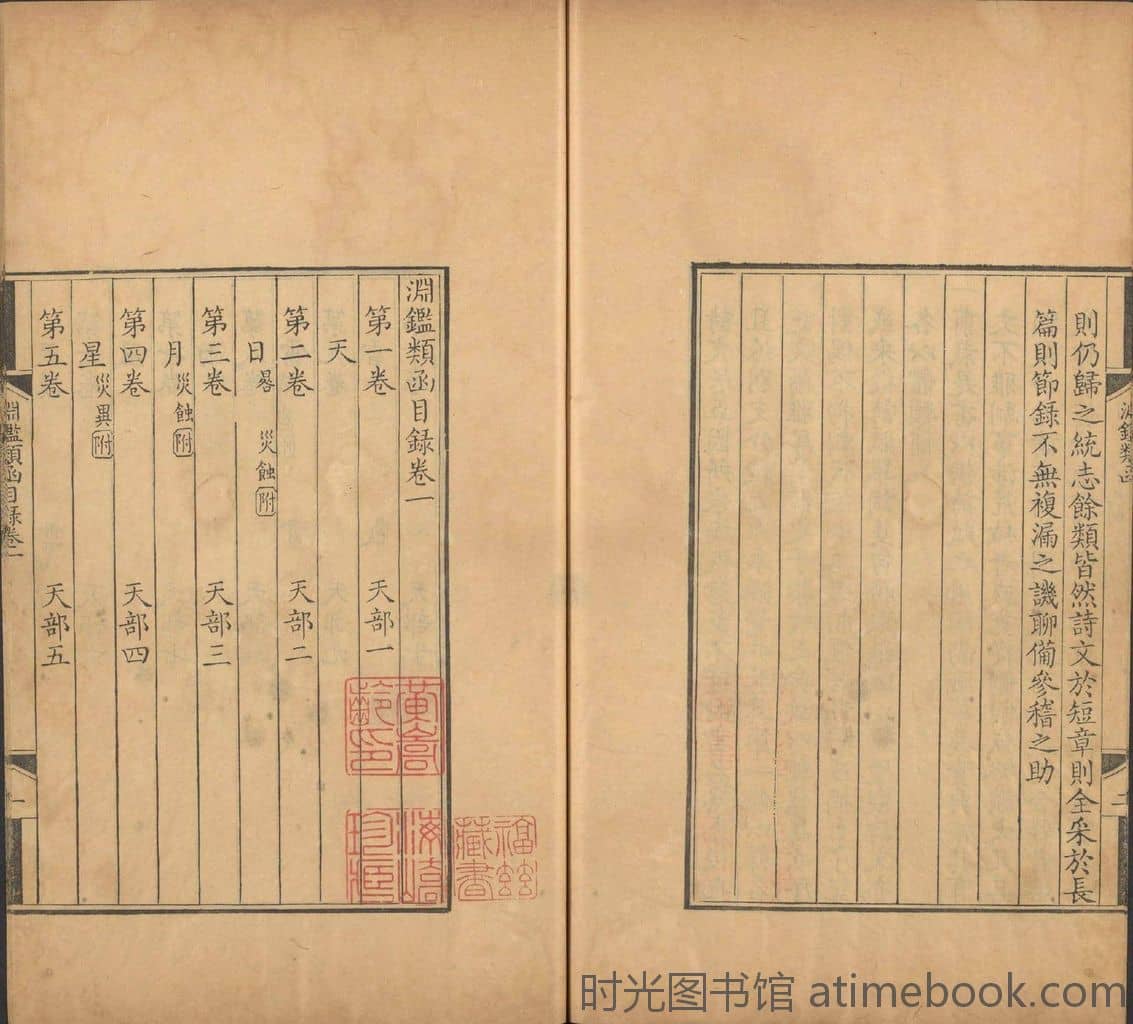 則仍歸之統志餘類皆然詩文於短章則全采於長
篇則節録不無複漏之譏聊備參稽之助
二
淵鑑類函目録卷一
第一卷 天部一
天
第二卷 天部二
日晷 災蝕附
第三卷 天部三
月災蝕附
第四卷 天部四
星災異附
第五卷 天部五
淵鑑類函目録卷一
一
藏書
时光图书馆 atimebook.com